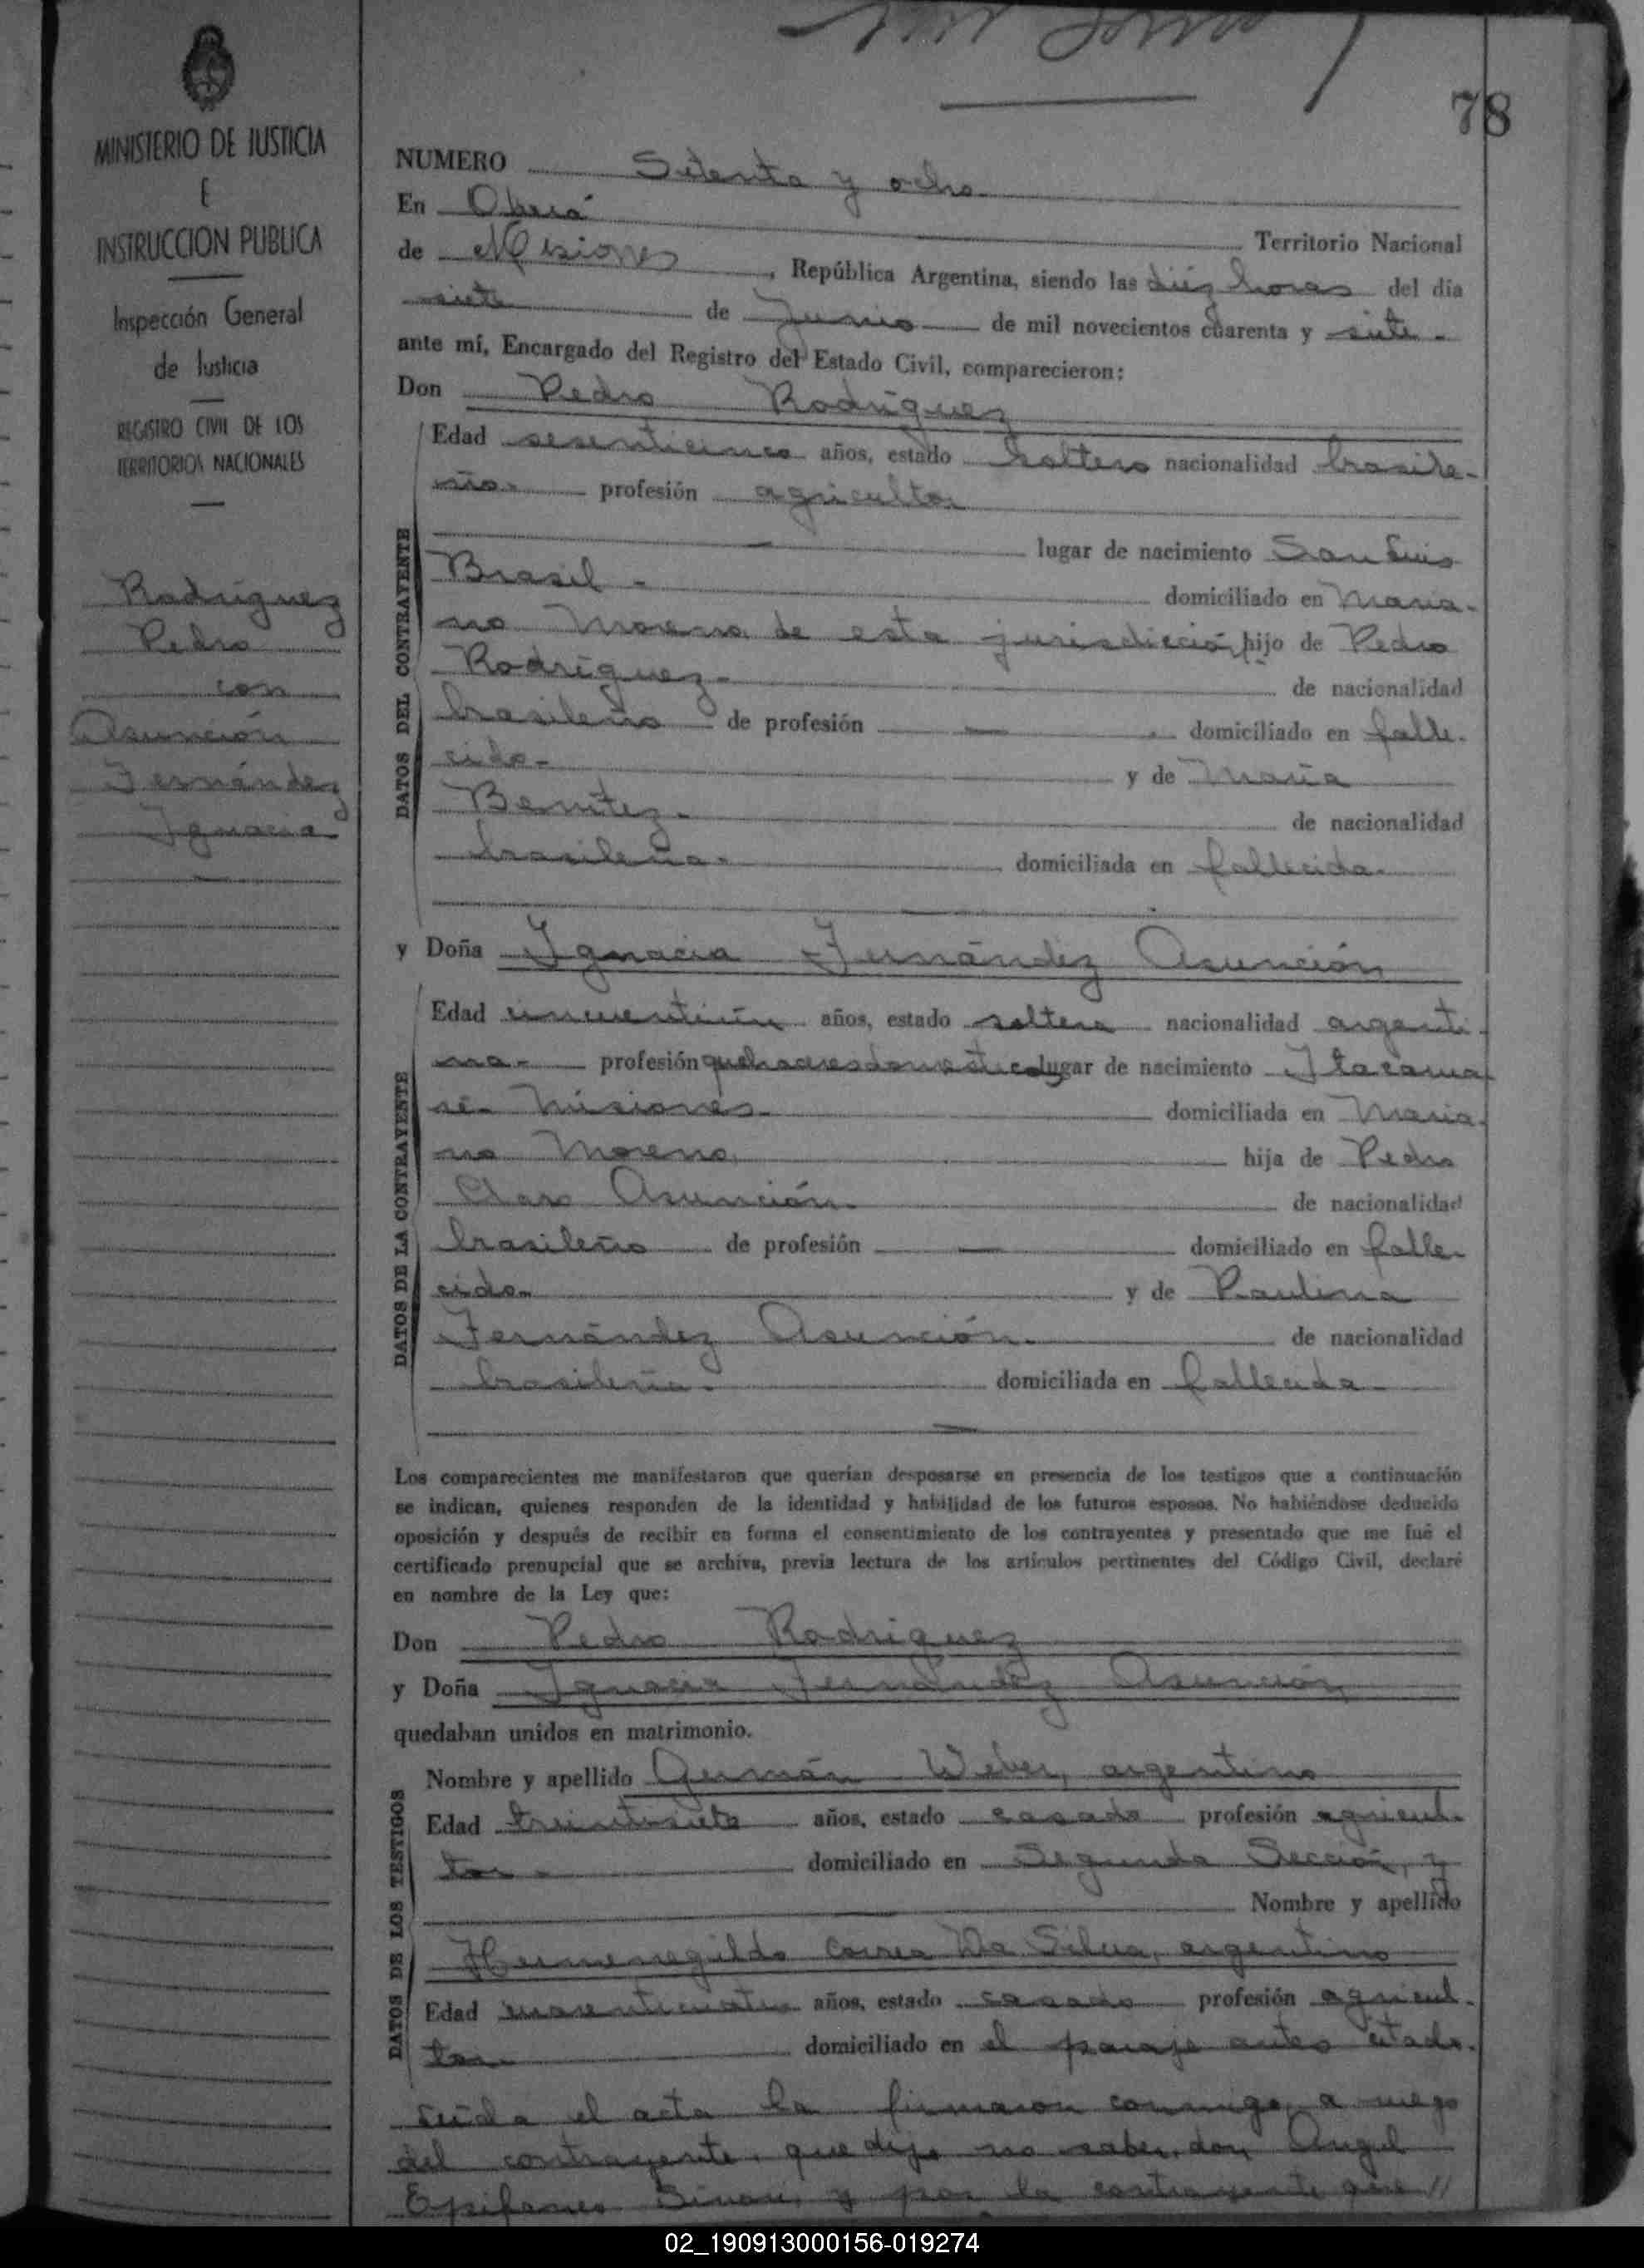 78
MINISTERIO DE JUSTICIA
E
INSTRUCCION PUBLICA
Inspección General
de Justicia
REGISTRO CIVIL DE LOS
TERRITORIOS NACIONALES
Rodríguez
Pedro
con
Asunción
Fernández
Ignacia
NUMERO Setenta y ocho
En Oberá Territorio Nacional
de Misiones, República Argentina, siendo las diéz horas del día
siete de Junio de mil novecientos cuarenta y siete.-
ante mí, Encargado del Registro del Estado Civil, comparecieron:
Don Pedro Rodríguez
DATOS DEL CONTRAYENTE
Edad sesenticinco años, estado soltero nacionalidad brasile-
ño.- profesión agricultor
lugar de nacimiento San Luis
Brasil.- domiciliado en Maria-
no Moreno de esta jurisdicción, hijo de Pedro
Rodríguez.- de nacionalidad
brasileño de profesión — domiciliado en falle-
cido.- y de María
Benítez.- de nacionalidad
brasileña.- domiciliada en fallecida.-
y Doña Ignacia Fernández Asunción
DATOS DE LA CONTRAYENTE
Edad cincuentiún años, estado soltera nacionalidad argenti-
na.- profesión quehaceres domésticos lugar de nacimiento Itacarua-
ré- Misiones.- domiciliada en Maria-
no Moreno hija de Pedro
Claro Asunción.- de nacionalidad
brasileño de profesión — domiciliado en falle-
cido.- y de Paulina
Fernández Asunción.- de nacionalidad
brasileña.- domiciliada en fallecida.-
Los comparecientes me manifestaron que querían desposarse en presencia de los testigos que a continuación
se indican, quienes responden de la identidad y habilidad de los futuros esposos. No habiéndose deducido
oposición y después de recibir en forma el consentimiento de los contrayentes y presentado que me fué el
certificado prenupcial que se archiva, previa lectura de los artículos pertinentes del Código Civil, declaré
en nombre de la Ley que:
Don Pedro Rodríguez
y Doña Ignacia Fernández Asunción
quedaban unidos en matrimonio.
DATOS DE LOS TESTIGOS
Nombre y apellido Germán Weber, argentino
Edad treintisiete años, estado casado profesión agricul-
tor.- domiciliado en Segunda Sección, y
Nombre y apellido
Hermenegildo Correa Da Silva, argentino
Edad cuarenticuatro años, estado casado profesión agricul-
tor.- domiciliado en el paraje antes citado.
Leída el acta la firmaron conmigo, a ruego
del contrayente, que dijo no saber, don Angel
y por la contrayente que //
02_190913000156-019274